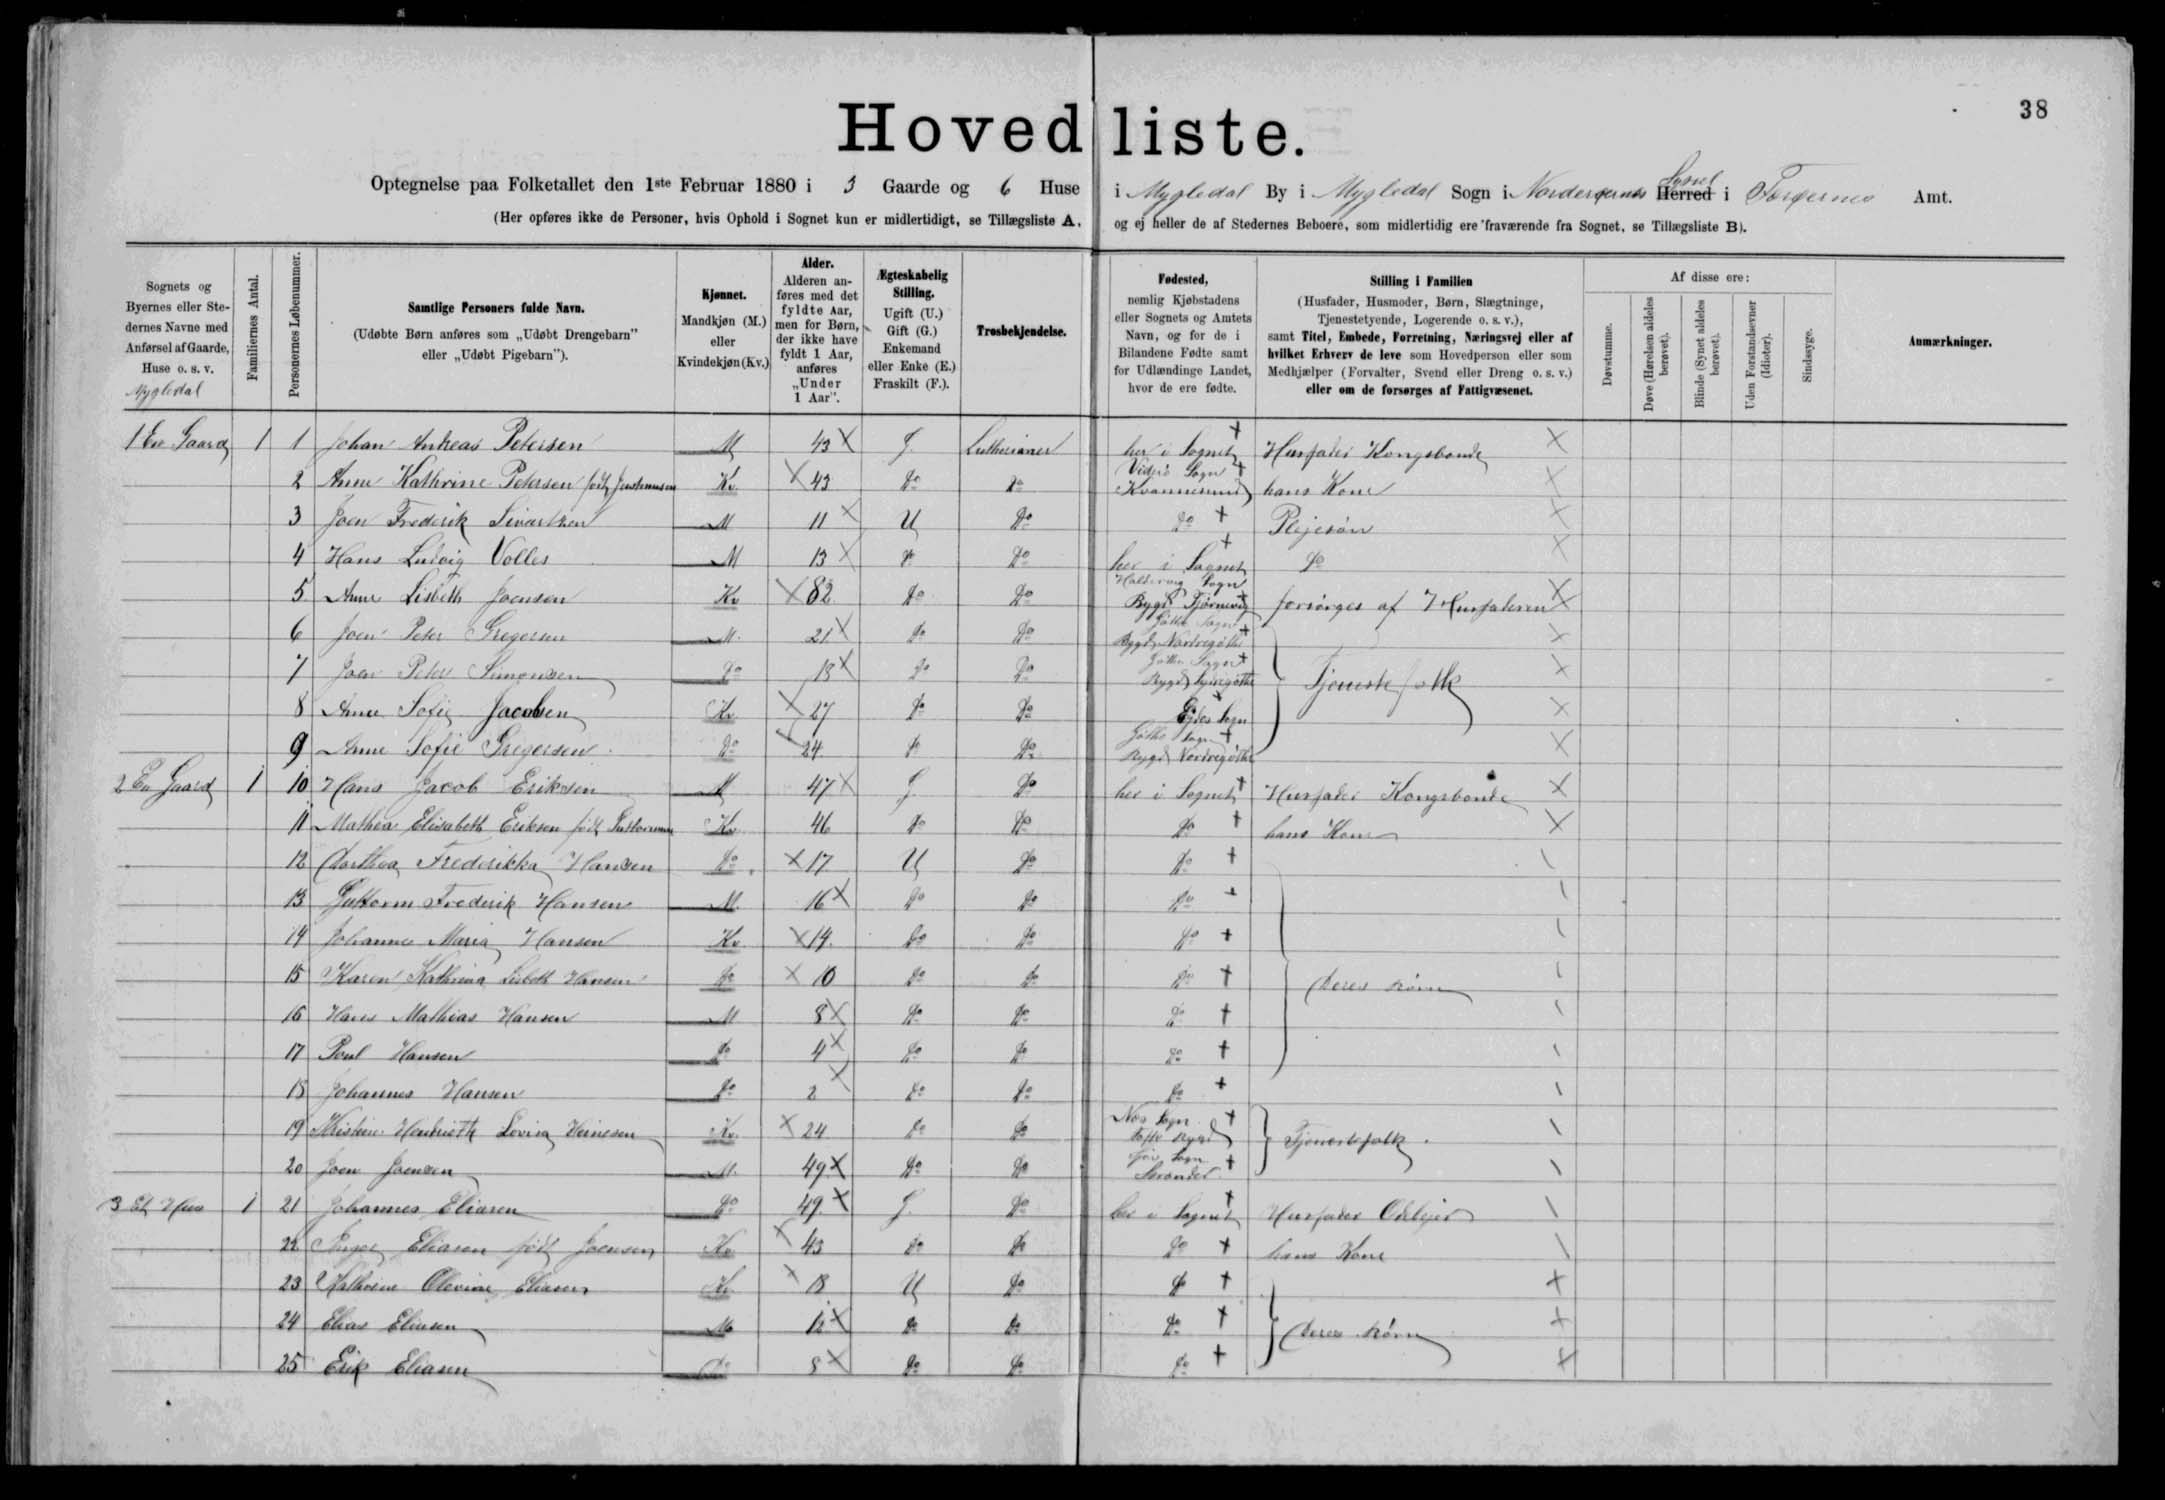 38
Hovedliste.
Optegnelse paa Folketallet den 1ste Februar 1880 i 3 Gaarde og 6 Huse i Mygledal By i Mygledal Sogn i Norderøernes Herred Syssel i Færøernes Amt.
(Her opføres ikke de Personer, hvis Ophold i Sognet kun er midlertidigt, se Tillægsliste A, og ej heller de af Stedernes Beboere, som midlertidig ere fraværende fra Sognet, se Tillægsliste B).
Sognets og Byernes eller Stedernes Navne med Anførsel af Gaarde, Huse o. s. v.
Mygledal
Familiernes Antal.
Personernes Løbenummer.
Samtlige Personers fulde Navn.
(Udøbte Børn anføres som „Udøbt Drengebarn" eller „Udøbt Pigebarn").
Kjønnet.
Mandkjøn (M.) eller Kvindekjøn (Kv.)
Alder.
Alderen anføres med det fyldte Aar, men for Børn, der ikke have fyldt 1 Aar, anføres „Under 1 Aar".
Ægteskabelig Stilling.
Ugift (U.) Gift (G.) Enkemand eller Enke (E.) Fraskilt (F.).
Trosbekjendelse.
Fødested,
nemlig Kjøbstadens eller Sognets og Amtets Navn, og for de i Bilandene Fødte samt for Udlændinge Landet, hvor de ere fødte.
Stilling i Familien
(Husfader, Husmoder, Børn, Slægtninge, Tjenestetyende, Logerende o. s. v.),
samt Titel, Embede, Forretning, Næringsvej eller af hvilket Erhverv de leve som Hovedperson eller som Medhjælper (Forvalter, Svend eller Dreng o. s. v.)
eller om de forsørges af Fattigvæsenet.
Af disse ere:
Døvstumme.
Døve (Hørelsen aldeles berøvet).
Blinde (Synet aldeles berøvet).
Uden Forstandsevner (Idioter).
Sindssyge.
Anmærkninger.
1 En Gaard 1 1 Johan Andreas Petersen M 43 G. Lutheraner her i Sognet Husfader Kongsbonde
2 Anne Kathrine Petersen født Kv. 43 Do Do Viderø Sogn Kvannesund hans Kone
3 Joen Frederik Sivartsen M 11 U Do Do Plejesøn
4 Hans Ludvig Volles M 13 Do Do her i Sognet Do
5 Anne Lisbeth Joensen Kv 82 Do Do Haldervig Sogn Bygd Tjørnevig forsørges af Husfaderen
6 Joen Peter Gregersen M. 21 Do Do Gøthe Sogn Bygd Nordregøthe
7 Joen Peter Simonsen Do 18 Do Do Gøthe Sogn Bygd Syregøthe Tjenestefolk
8 Anne Sofie Jacobsen Kv 27 Do Do Ejdes Sogn
9 Anne Sofie Gregersen Do 24 Do Do Gøthe Sogn Bygd Nordregøthe
2 En Gaard 1 10 Hans Jacob Eriksen M 47 G Do her i Sognet Husfader Kongsbonde
11 Mathea Elisabeth Eriksen født Guttormsen Kv. 46 Do Do Do hans Kone
12 Dorthea Frederikka Hansen Do 17 U Do Do
13 Guttorm Frederik Hansen M. 16 Do Do Do
14 Johanne Maria Hansen Kv 14 Do Do Do
15 Karen Kathrina Lisbeth Hansen Do 10 Do Do Do Deres Børn
16 Hans Mathias Hansen M 8 Do Do Do
17 Poul Hansen Do 4 Do Do Do
18 Johannes Hansen Do 2 Do Do Do
19 Henriette Lovisa Heinesen Kv. 24 Do Do Næs Sogn Tofte Bygd Tjenestefolk.
20 Joen Joensen M. 49 Do Do Sogn
3 Et Hus 1 21 Johannes Eliasen Do 49 G. Do her i Sognet Husfader
22 Eliasen født Joensen Kv 43 Do Do Do hans Kone
23 Kathrine Olevine Eliasen Kv. 18 U Do Do
24 Elias Eliasen M 12 Do Do Do Deres Børn
25 Erik Eliasen Do 8 Do Do Do